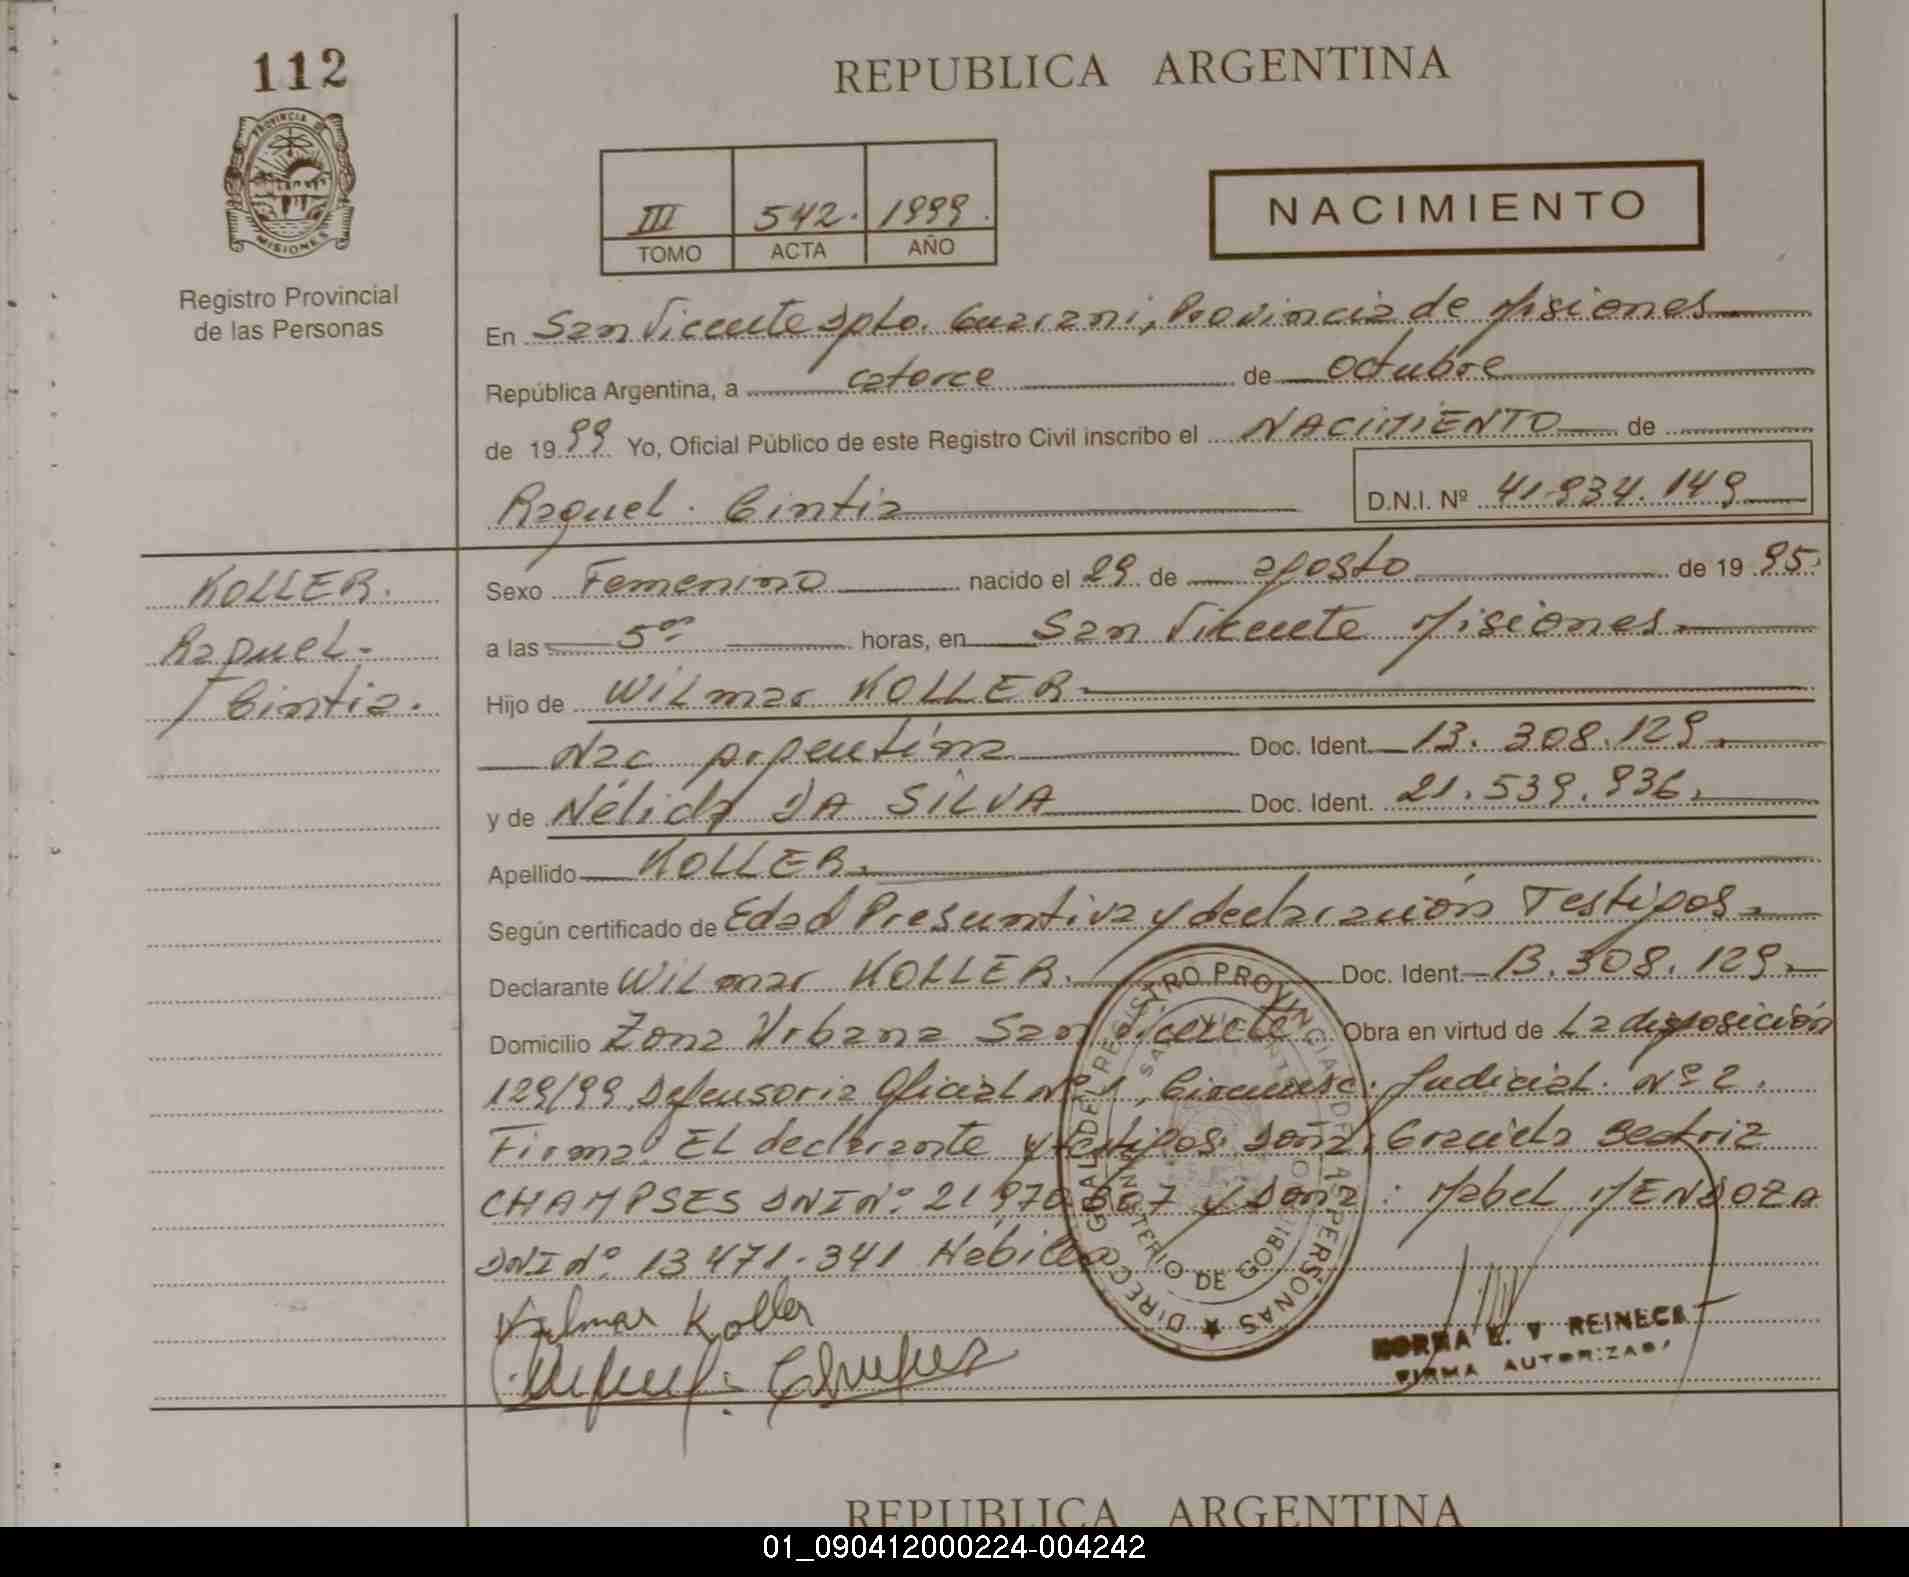 112
REPUBLICA ARGENTINA
PROVINCIA DE
MISIONES
Registro Provincial
de las Personas
III 542. 1999.
TOMO ACTA AÑO
NACIMIENTO
En San Vicente Dpto. Guarani, Provincia de Misiones
República Argentina, a catorce de octubre
de 1999 Yo, Oficial Público de este Registro Civil inscribo el NACIMIENTO de
Raquel. Cintia D.N.I. Nº 41.934.149
KOLLER.
Raquel.
Cintia.
Sexo Femenino nacido el 29 de agosto de 1995.
a las 5 horas, en San Vicente Misiones.
Hijo de Wilmar KOLLER.
Nac argentina Doc. Ident. 13.308.129.
y de Nélida DA SILVA Doc. Ident. 21.539.936.
Apellido KOLLER.
Según certificado de Edad Presuntiva y declaración Testigos.
Declarante Wilmar KOLLER. Doc. Ident. 13.308.129.
Domicilio Zona Urbana San Vicente Obra en virtud de La disposición
129/99 Defensoria Oficial Nº 1, Circunsc. Judicial. Nº 2.
Firma: El declarante y testigos. Doña: Graciela Beatriz
CHAMPSES DNI Nº 21.970. y Doña: Mabel MENDOZA
DNI Nº 13.471.341
DIRECC. GRAL. DE REGISTRO PROVINCIAL DE LAS PERSONAS
SAN VICENTE
MINISTERIO DE GOBIERNO
Wilmar Koller
NORMA E. V REINECK
FIRMA AUTORIZADA
REPUBLICA ARGENTINA
01_090412000224-004242